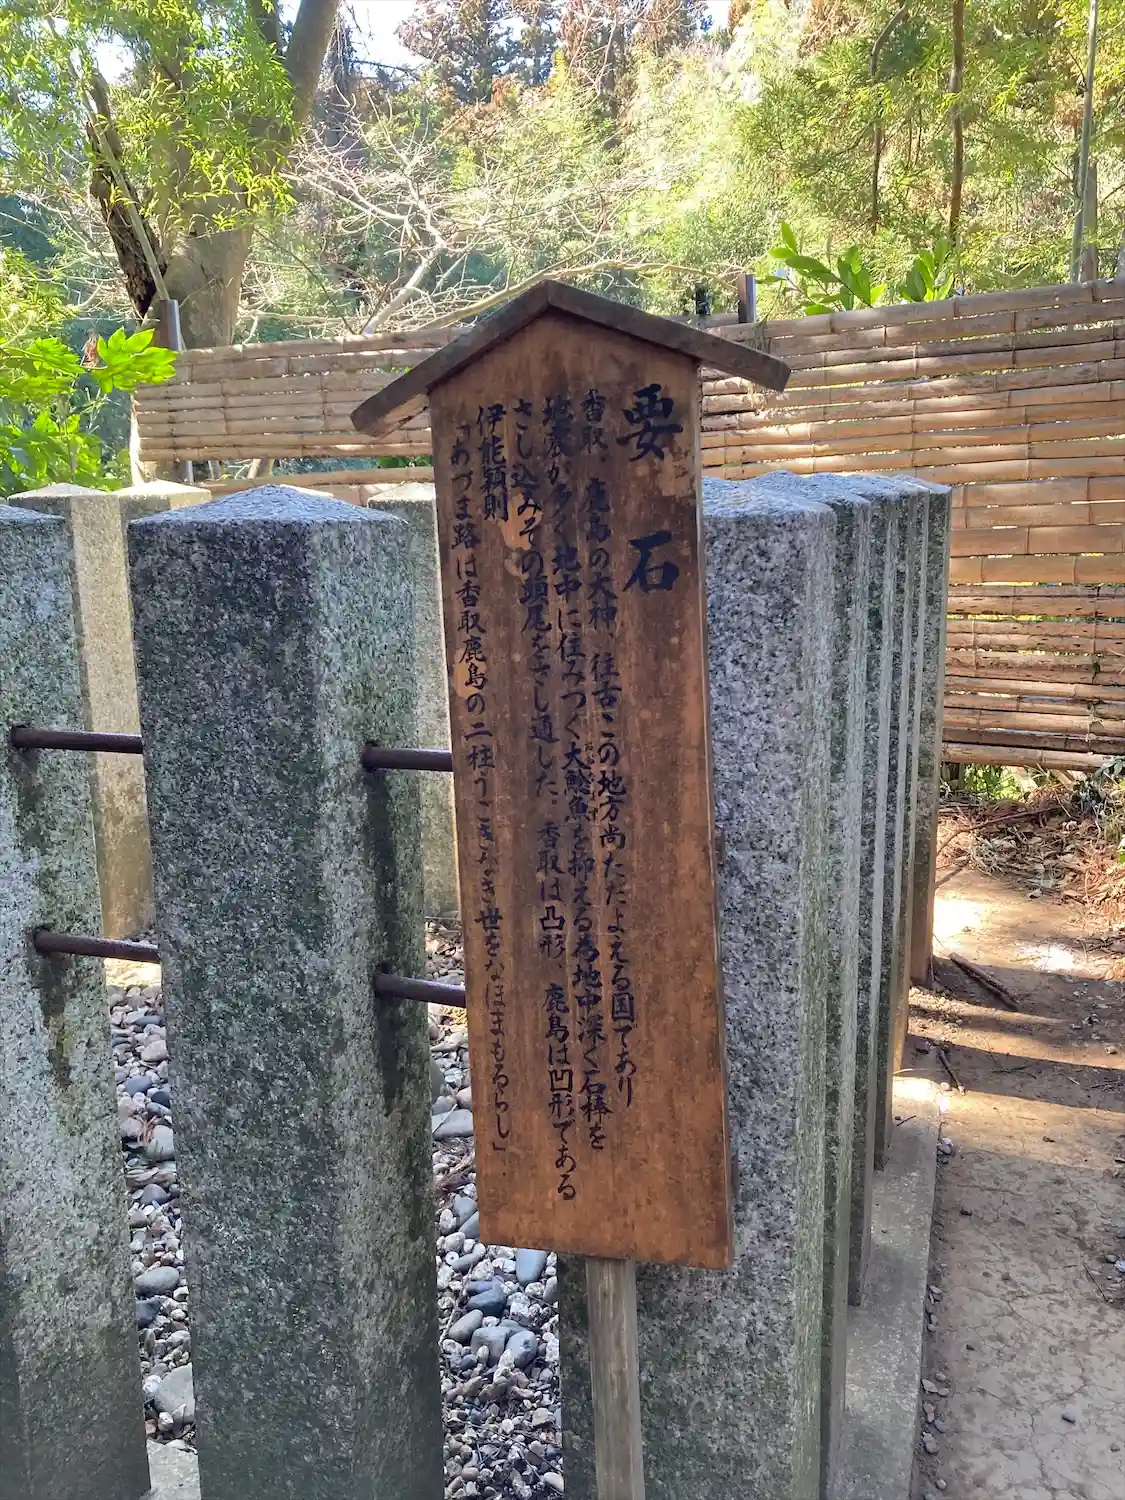 要石
香取、鹿島の大神、往古この地方尚ただよえる国であり
地震が多く、地中に住みつく大鯰魚を抑える為地中深く石棒を
さし込みその頭尾をさし通した。香取は凸形、鹿島は凹形である
伊能穎則
「あづま路は香取鹿島の二柱うごきなき世をなほまもるらし」